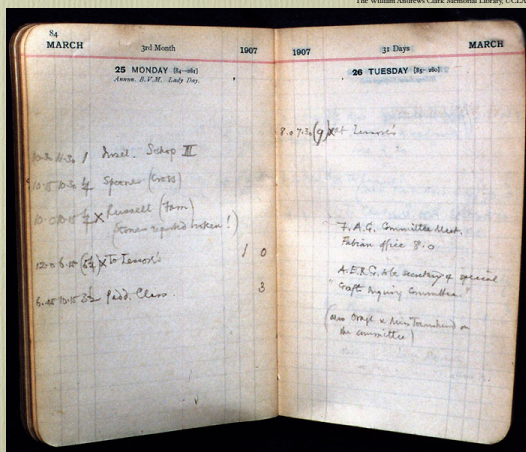 The William Andrews Clark Memorial Library, UCLA
84
MARCH 3rd Month 1907
25 MONDAY [84-281]
Annun. B.V.M. Lady Day.
10.30 11.30 1 Amel. School III
10.15 10.30 ¼ Spooner (Cross)
10.0 10.15 ¼ x Russell (Farm)
(Stones reported broken!)
12.0 6.15 x to Lessons 1 0
6.45 10.15 3½ Padd. Class. 3
1907 31 Days MARCH
26 TUESDAY [85-280]
8.0 7.30 (9) x at Lessons
F.A.G. Committee Meet.
Fabian office 8.0
A.E.R.G. to be secretary of special
"Craft Inquiry Committee"
(also Orage & Miss Townshend on
the committee)